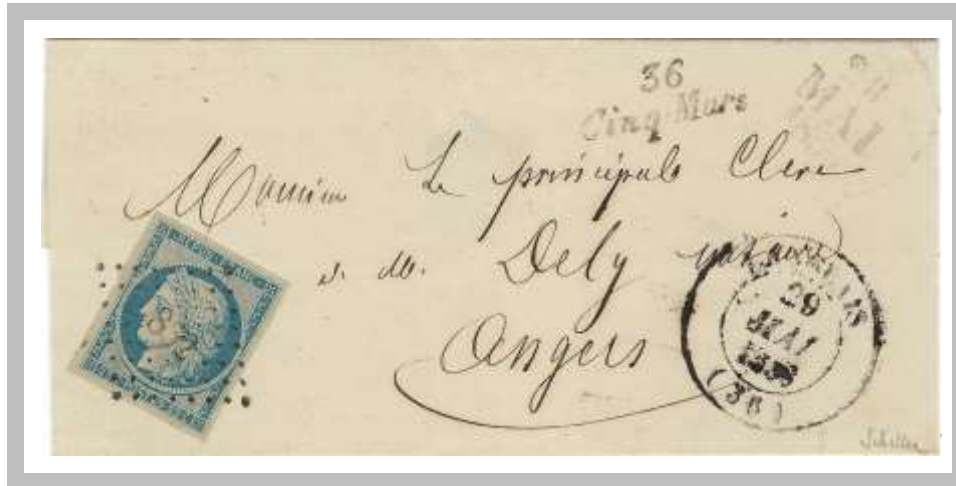 36
Cinq-Mars
MAI
Monsieur Le principale Clerc
d. M. Dely notaire
Angers
29
MAI
(36)